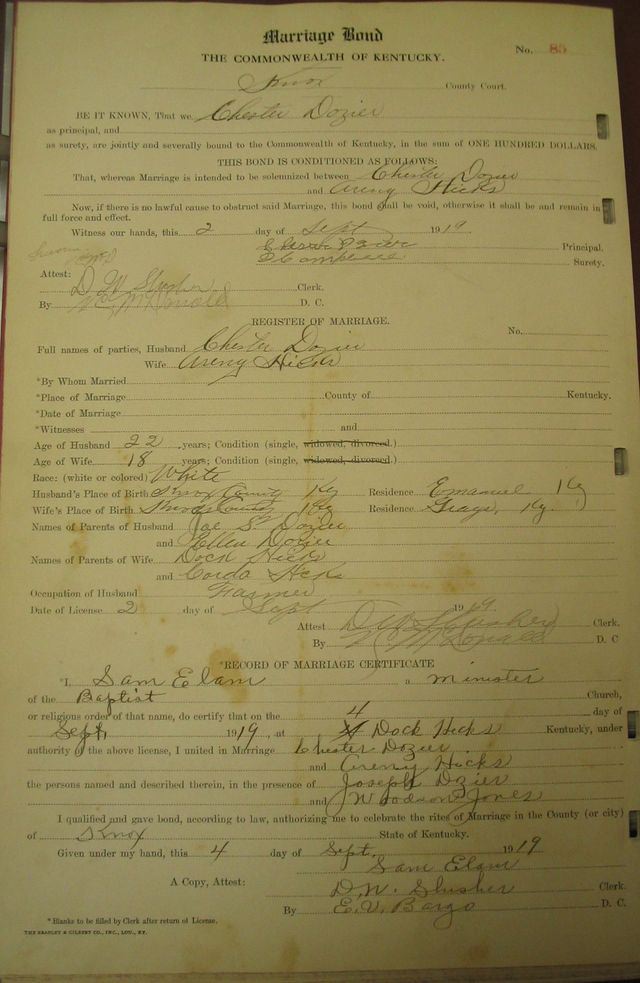 Marriage Bond
THE COMMONWEALTH OF KENTUCKY. No. 85
Knox County Court.
BE IT KNOWN, That we Chester Dozier
as principal, and
as surety, are jointly and severally bound to the Commonwealth of Kentucky, in the sum of ONE HUNDRED DOLLARS.
THIS BOND IS CONDITIONED AS FOLLOWS:
That, whereas Marriage is intended to be solemnized between Chester Dozier
and Areny Hicks
Now, if there is no lawful cause to obstruct said Marriage, this bond shall be void, otherwise it shall be and remain in
full force and effect.
Witness our hands, this 2 day of Sept 1919.
Chester Dozier Principal.
Surety.
Attest:
D W Slusher Clerk.
By McDonald D. C.
REGISTER OF MARRIAGE.
No.
Full names of parties, Husband Chester Dozier
Wife Areny Hicks
*By Whom Married
*Place of Marriage County of Kentucky.
*Date of Marriage
*Witnesses and
Age of Husband 22 years; Condition (single, widowed, divorced.)
Age of Wife 18 years; Condition (single, widowed, divorced.)
Race: (white or colored) White
Husband's Place of Birth Knox County Ky Residence Emanuel Ky
Wife's Place of Birth Knox County Ky Residence Grays, Ky.
Names of Parents of Husband Joe Dozier
and Ellen Dozier
Names of Parents of Wife Dock Hicks
and Corda Hicks
Occupation of Husband Farmer
Date of License 2 day of Sept 1919.
Attest D W Slusher Clerk.
By McDonald D. C
*RECORD OF MARRIAGE CERTIFICATE
*I, Sam Elam a minister
of the Baptist Church,
or religious order of that name, do certify that on the 4 day of
Sept, 1919, at Dock Hicks Kentucky, under
authority of the above license, I united in Marriage Chester Dozier
and Areny Hicks
the persons named and described therein, in the presence of Joseph Dozier
and Woodson Jones
I qualified and gave bond, according to law, authorizing me to celebrate the rites of Marriage in the County (or city)
of Knox State of Kentucky.
Given under my hand, this 4 day of Sept, 1919
Sam Elam
A Copy, Attest: D. W. Slusher Clerk.
By E. V. Bargo D. C.
*Blanks to be filled by Clerk after return of License.
THE BRADLEY & GILBERT CO., INC., LOU., KY.